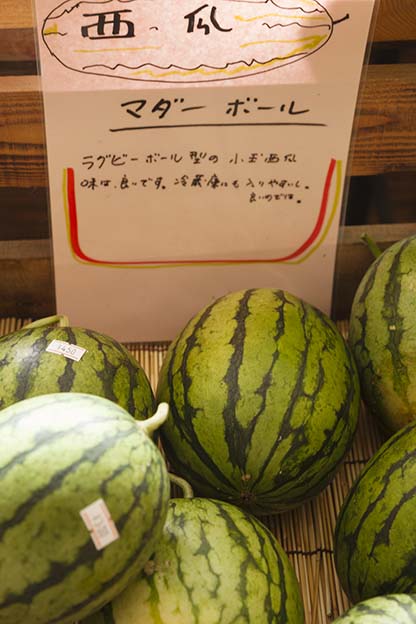 西瓜
マダーボール
ラグビーボール型の小玉西瓜
味は、良いです。冷蔵庫にも入りやすいし、
良いのでは。
1450